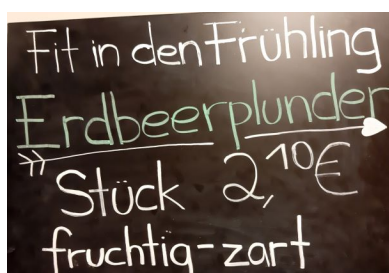 Fit in den Frühling
Erdbeerplunder
Stück 2,10€
fruchtig-zart